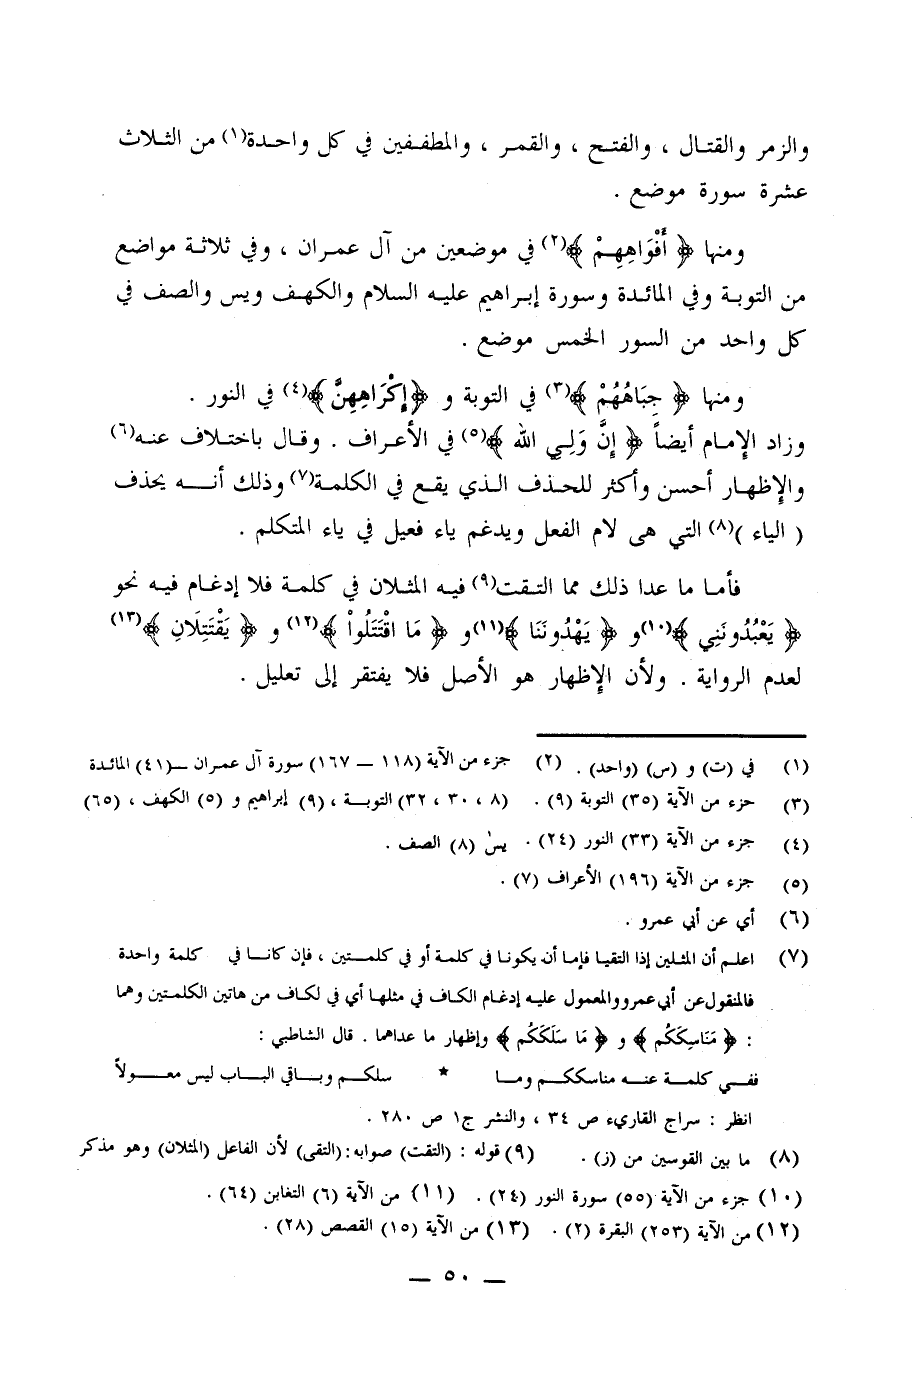 والزمر والقتـال ، والفتـح ، والقمـر ، والمطفـفين في كل واحـدة(١) من الثـلاث
عشرة سورة موضع .
ومنها ﴿ أَفْوَاهِهِمْ ﴾(٢) في موضعين من آل عمـران ، وفي ثلاثـة مواضع
من التوبـة وفي المائـدة وسورة إبراهيم عليـه السلام والكهـف ويس والصف في
كل واحـد من السور الخمس موضع .
ومنها ﴿ جِبَاهُهُمْ ﴾(٣) في التوبة و ﴿إِكْرَاهِهِنَّ﴾(٤) في النور .
وزاد الإمـام أيضاً ﴿ إِنَّ وَلِـيِ الله ﴾(٥) في الأعراف . وقـال باخـتلاف عنـه(٦)
والإظهـار أحسن وأكثر للحـذف الـذي يقـع في الكلمـة(٧) وذلك أنـــه يحذف
( اليـاء )(٨) التي هى لام الفعل ويدغم ياء فعيل في ياء المتكلم .
فأمـا ما عدا ذلك مما التـقت(٩) فيـه المثـلان في كلمـة فلا إدغـام فيه نحو
﴿ يَعْبُدُونَنِي ﴾(١٠)و ﴿ يَهْدُونَنَا ﴾(١١)و ﴿ مَا اقْتَتَلُواْ ﴾(١٢) و ﴿ يَقْتَتِلَانِ ﴾(١٣)
لعدم الرواية . ولأن الإظهار هو الأصل فلا يفتقر إلى تعليل .
(١) في (ت) و (س) (واحد) . (٢) جزء من الآية (١١٨ – ١٦٧) سورة آل عمران –(٤١) المائدة
(٣) جزء من الآية (٣٥) التوبة (٩) . (٨ ، ٣٠ ، ٣٢) التوبـة ، (٩) إبراهيم و (٥) الكهف ، (٦٥)
(٤) جزء من الآية (٣٣) النور (٢٤) . يسٰ (٨) الصف .
(٥) جزء من الآية (١٩٦) الأعراف (٧) .
(٦) أي عن أبي عمرو .
(٧) اعلم أن المثلين إذا التقيا فإما أن يكونا في كلمة أو في كلمـتين ، فإن كانـا في كلمة واحدة
فالمنقول عن أبي عمرو والمعمول عليـه إدغام الكاف في مثلهـا أي في لكاف من هاتين الكلمتين وهما
: ﴿ مَنَاسِكَكُم ﴾ و ﴿ مَا سَلَكَكُم ﴾ وإظهار ما عداهما . قال الشاطبي :
ففـي كلمـة عنـه مناسككـم ومـا * سلكـم وبـاقي البـاب ليس معـولاً
انظر : سراج القاريء ص ٣٤ ، والنشر ج١ ص ٢٨٠ .
(٨) ما بين القوسين من (ز) . (٩) قوله : (التقت) صوابه: (التقى) لأن الفاعل (المثلان) وهو مذكر
(١٠) جزء من الآية (٥٥) سورة النور (٢٤) . (١١) من الآية (٦) التغابن (٦٤) .
(١٢) من الآية (٢٥٣) البقرة (٢) . (١٣) من الآية (١٥) القصص (٢٨) .
— ٥٠ —